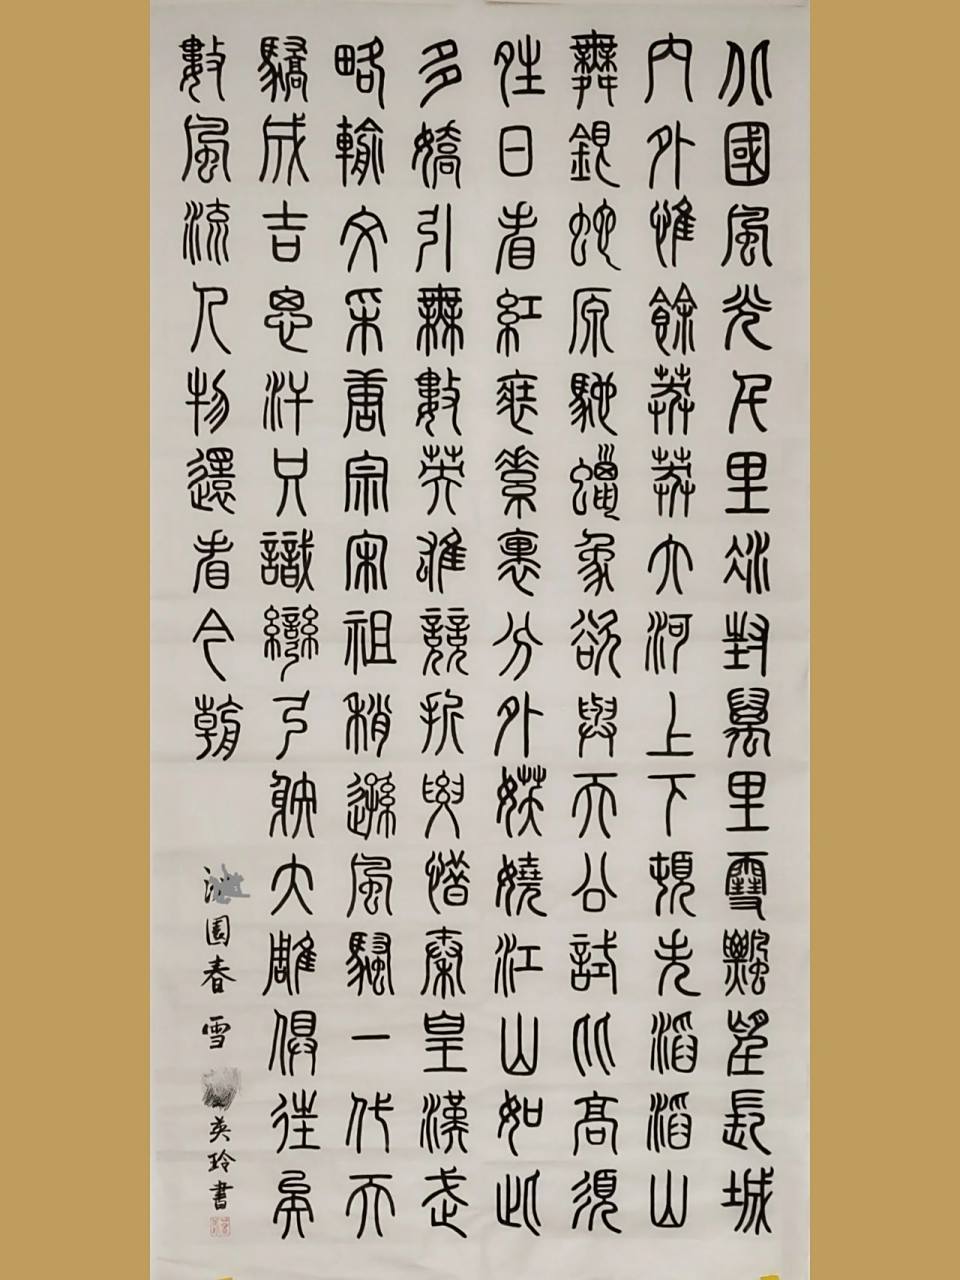 北國風光千里冰封萬里雪飄望長城
內外惟餘莽莽大河上下頓失滔滔山
舞銀蛇原馳蠟象欲與天公試比高須
晴日看紅裝素裹分外妖嬈江山如此
多嬌引無數英雄競折腰惜秦皇漢武
略輸文采唐宗宋祖稍遜風騷一代天
驕成吉思汗只識彎弓射大雕俱往矣
數風流人物還看今朝
園春 雪 英玲書